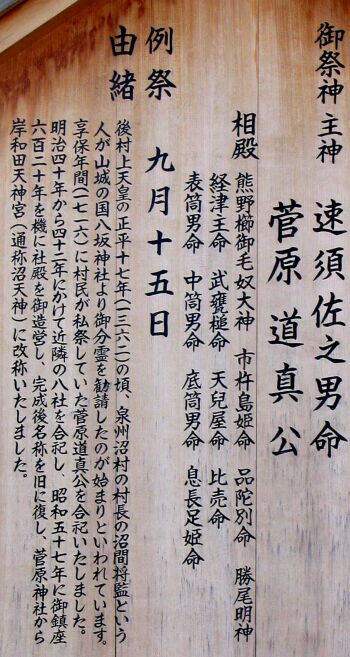 御祭神 主神 速須佐之男命
菅原道真公
相殿 熊野櫛御毛奴大神 市杵島姫命 品陀別命 勝尾明神
経津主命 武甕槌命 天兒屋命 比売命
表筒男命 中筒男命 底筒男命 息長足姫命
例祭 九月十五日
由緒
後村上天皇の正平十七年(一三六二)の頃、泉州沼村の村長の沼間将監という
人が山城の国八坂神社より御分霊を勧請したのが始まりといわれています。
享保年間(一七一六)に村民が私祭していた菅原道真公を合祀いたしました。
明治四十年から四十二年にかけて近隣の八社を合祀し、昭和五十七年に御鎮座
六百二十年を機に社殿を御造営し、完成後名称を旧に復し、菅原神社から
岸和田天神宮(通称沼天神)に改称いたしました。